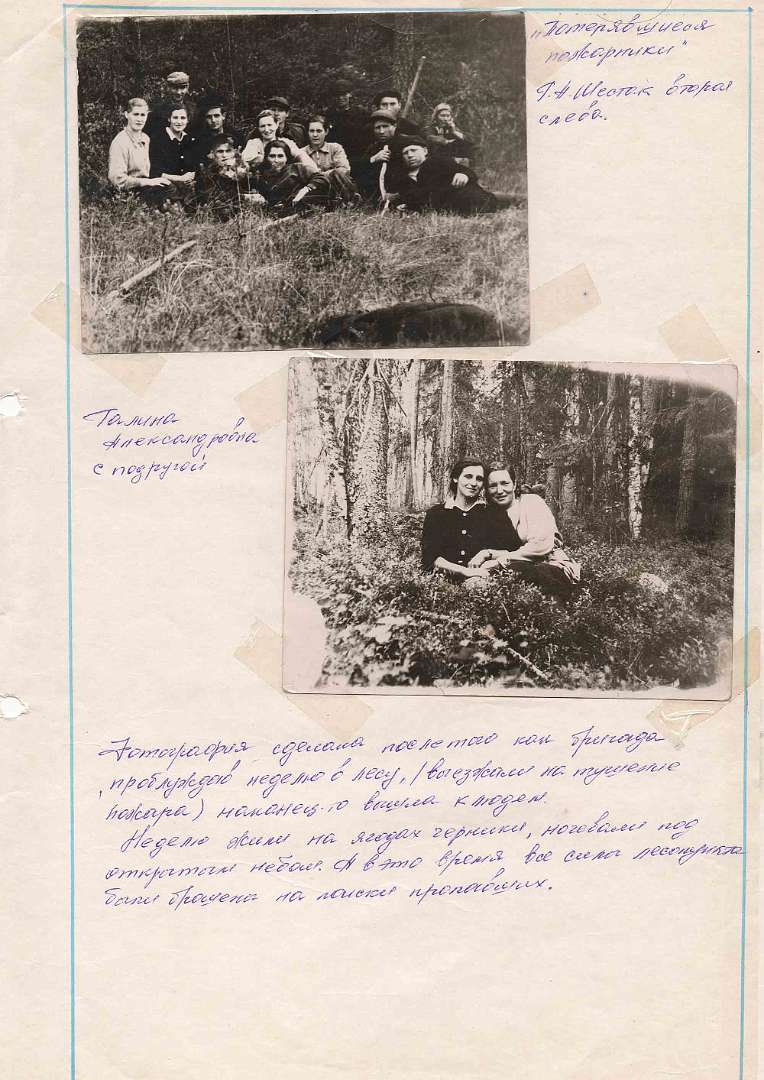 "Потерявшиеся
пожарники"
Г.А. Шестак вторая
слева.
Галина
Александровна
с подругой
Фотография сделана после того как бригада
проблуждав неделю в лесу, (выезжали на тушение
пожара) наконец-то вышла к людям.
Неделю жили на ягодах черники, ночевали под
открытым небом. А в это время все силы лесопункта
были брошены на поиски пропавших.